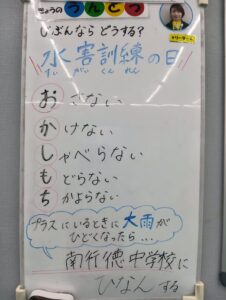 きょうの うんどう
リーダー
じぶんなら どうする?
水害訓練の日
すいがいくんれん
おさない
かけない
しゃべらない
もどらない
ちかよらない
プラスにいるときに大雨が
ひどくなったら...
南行徳中学校に
ひなんする